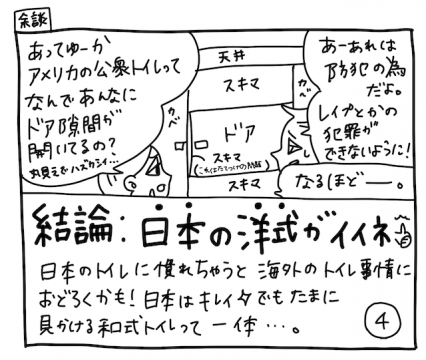 余談
あってゆーか
アメリカの公衆トイレって
なんであんなに
ドア隙間が
開いてるの?
丸見えでハズカシイ…
天井
スキマ
カベ
カベ
ドア
スキマ
スキマ
あーあれは
防犯の為
だよ。
レイプとかの
犯罪が
できないように!
なるほどー。
結論:日本の洋式がイイネ
日本のトイレに慣れちゃうと海外のトイレ事情に
おどろくかも!日本はキレイタでもたまに
見かける和式トイレって一体…。
4